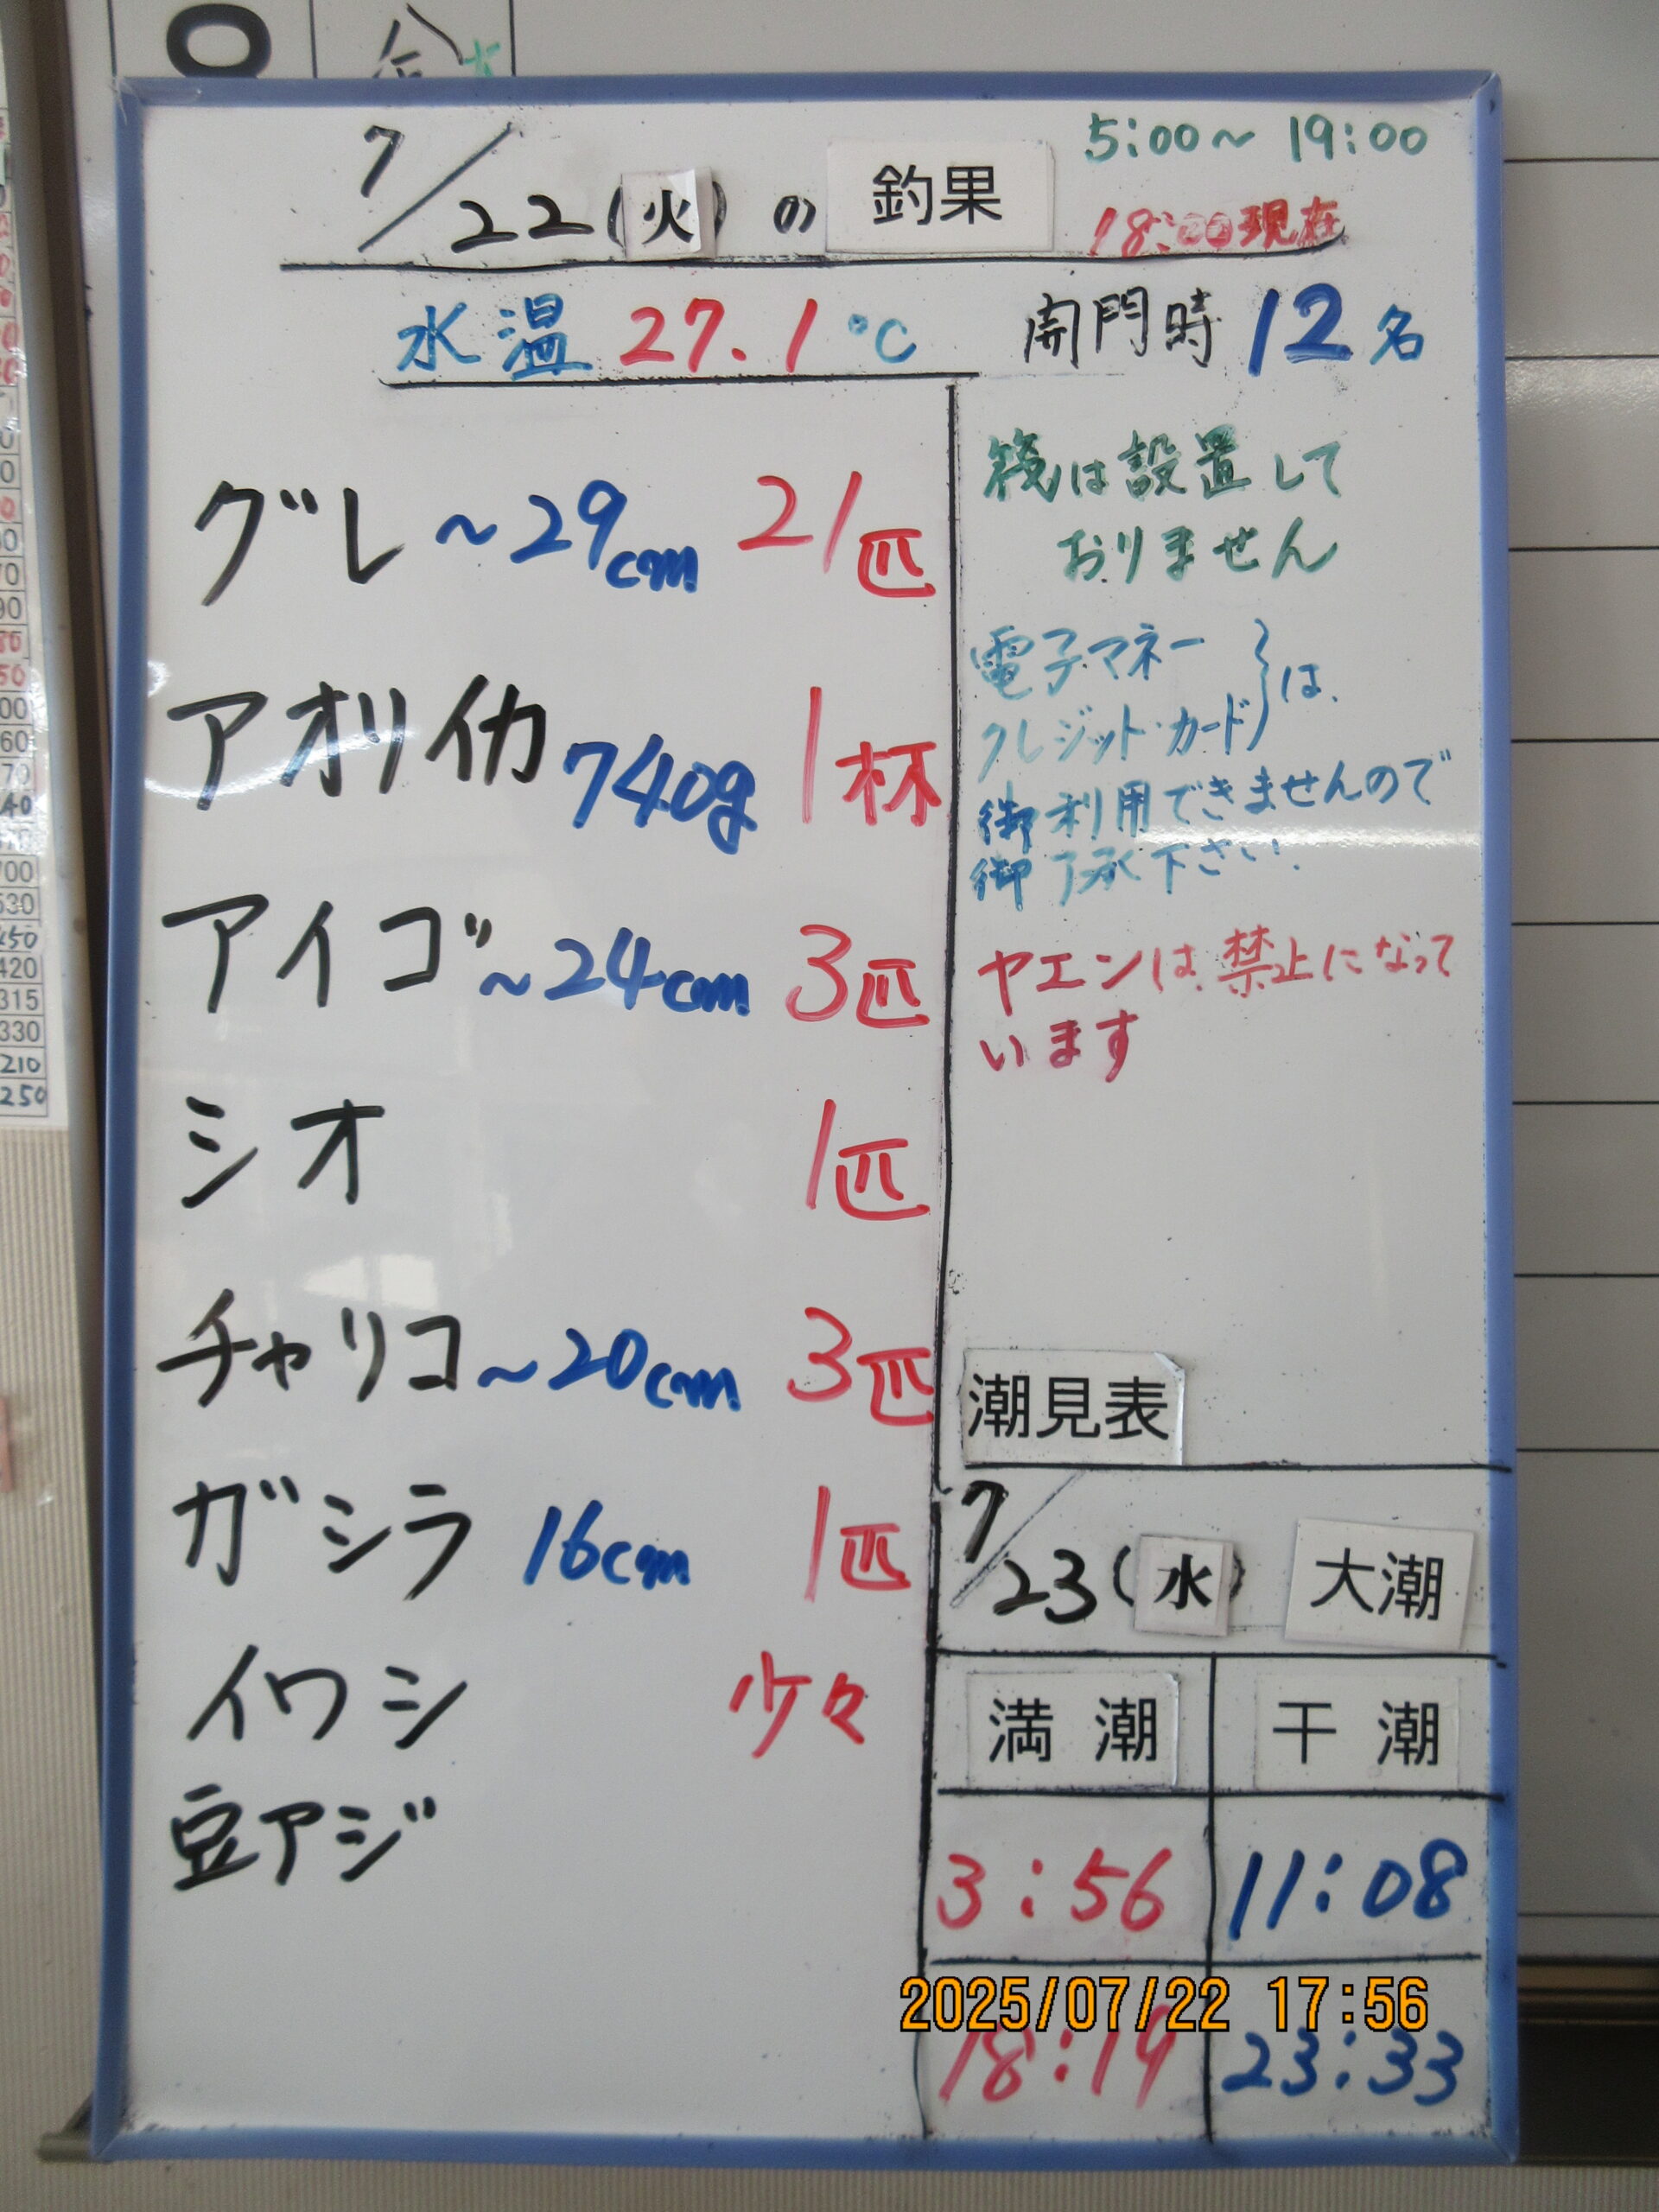 5:00～19:00
7/22(火)の釣果
18:00現在
水温 27.1℃
開門時 12名
グレ ～29cm 21匹
アオリイカ 740g 1杯
アイゴ ～24cm 3匹
シオ 1匹
チャリコ ～20cm 3匹
ガシラ 16cm 1匹
イワシ 少々
豆アジ
筏は設置して
おりません
電子マネー
クレジット・カード}は、
御利用できませんので
御了承下さい.
ヤエンは、禁止になって
います
潮見表
7/23(水) 大潮
満潮 干潮
3:56 11:08
18:19 23:33
2025/07/22 17:56